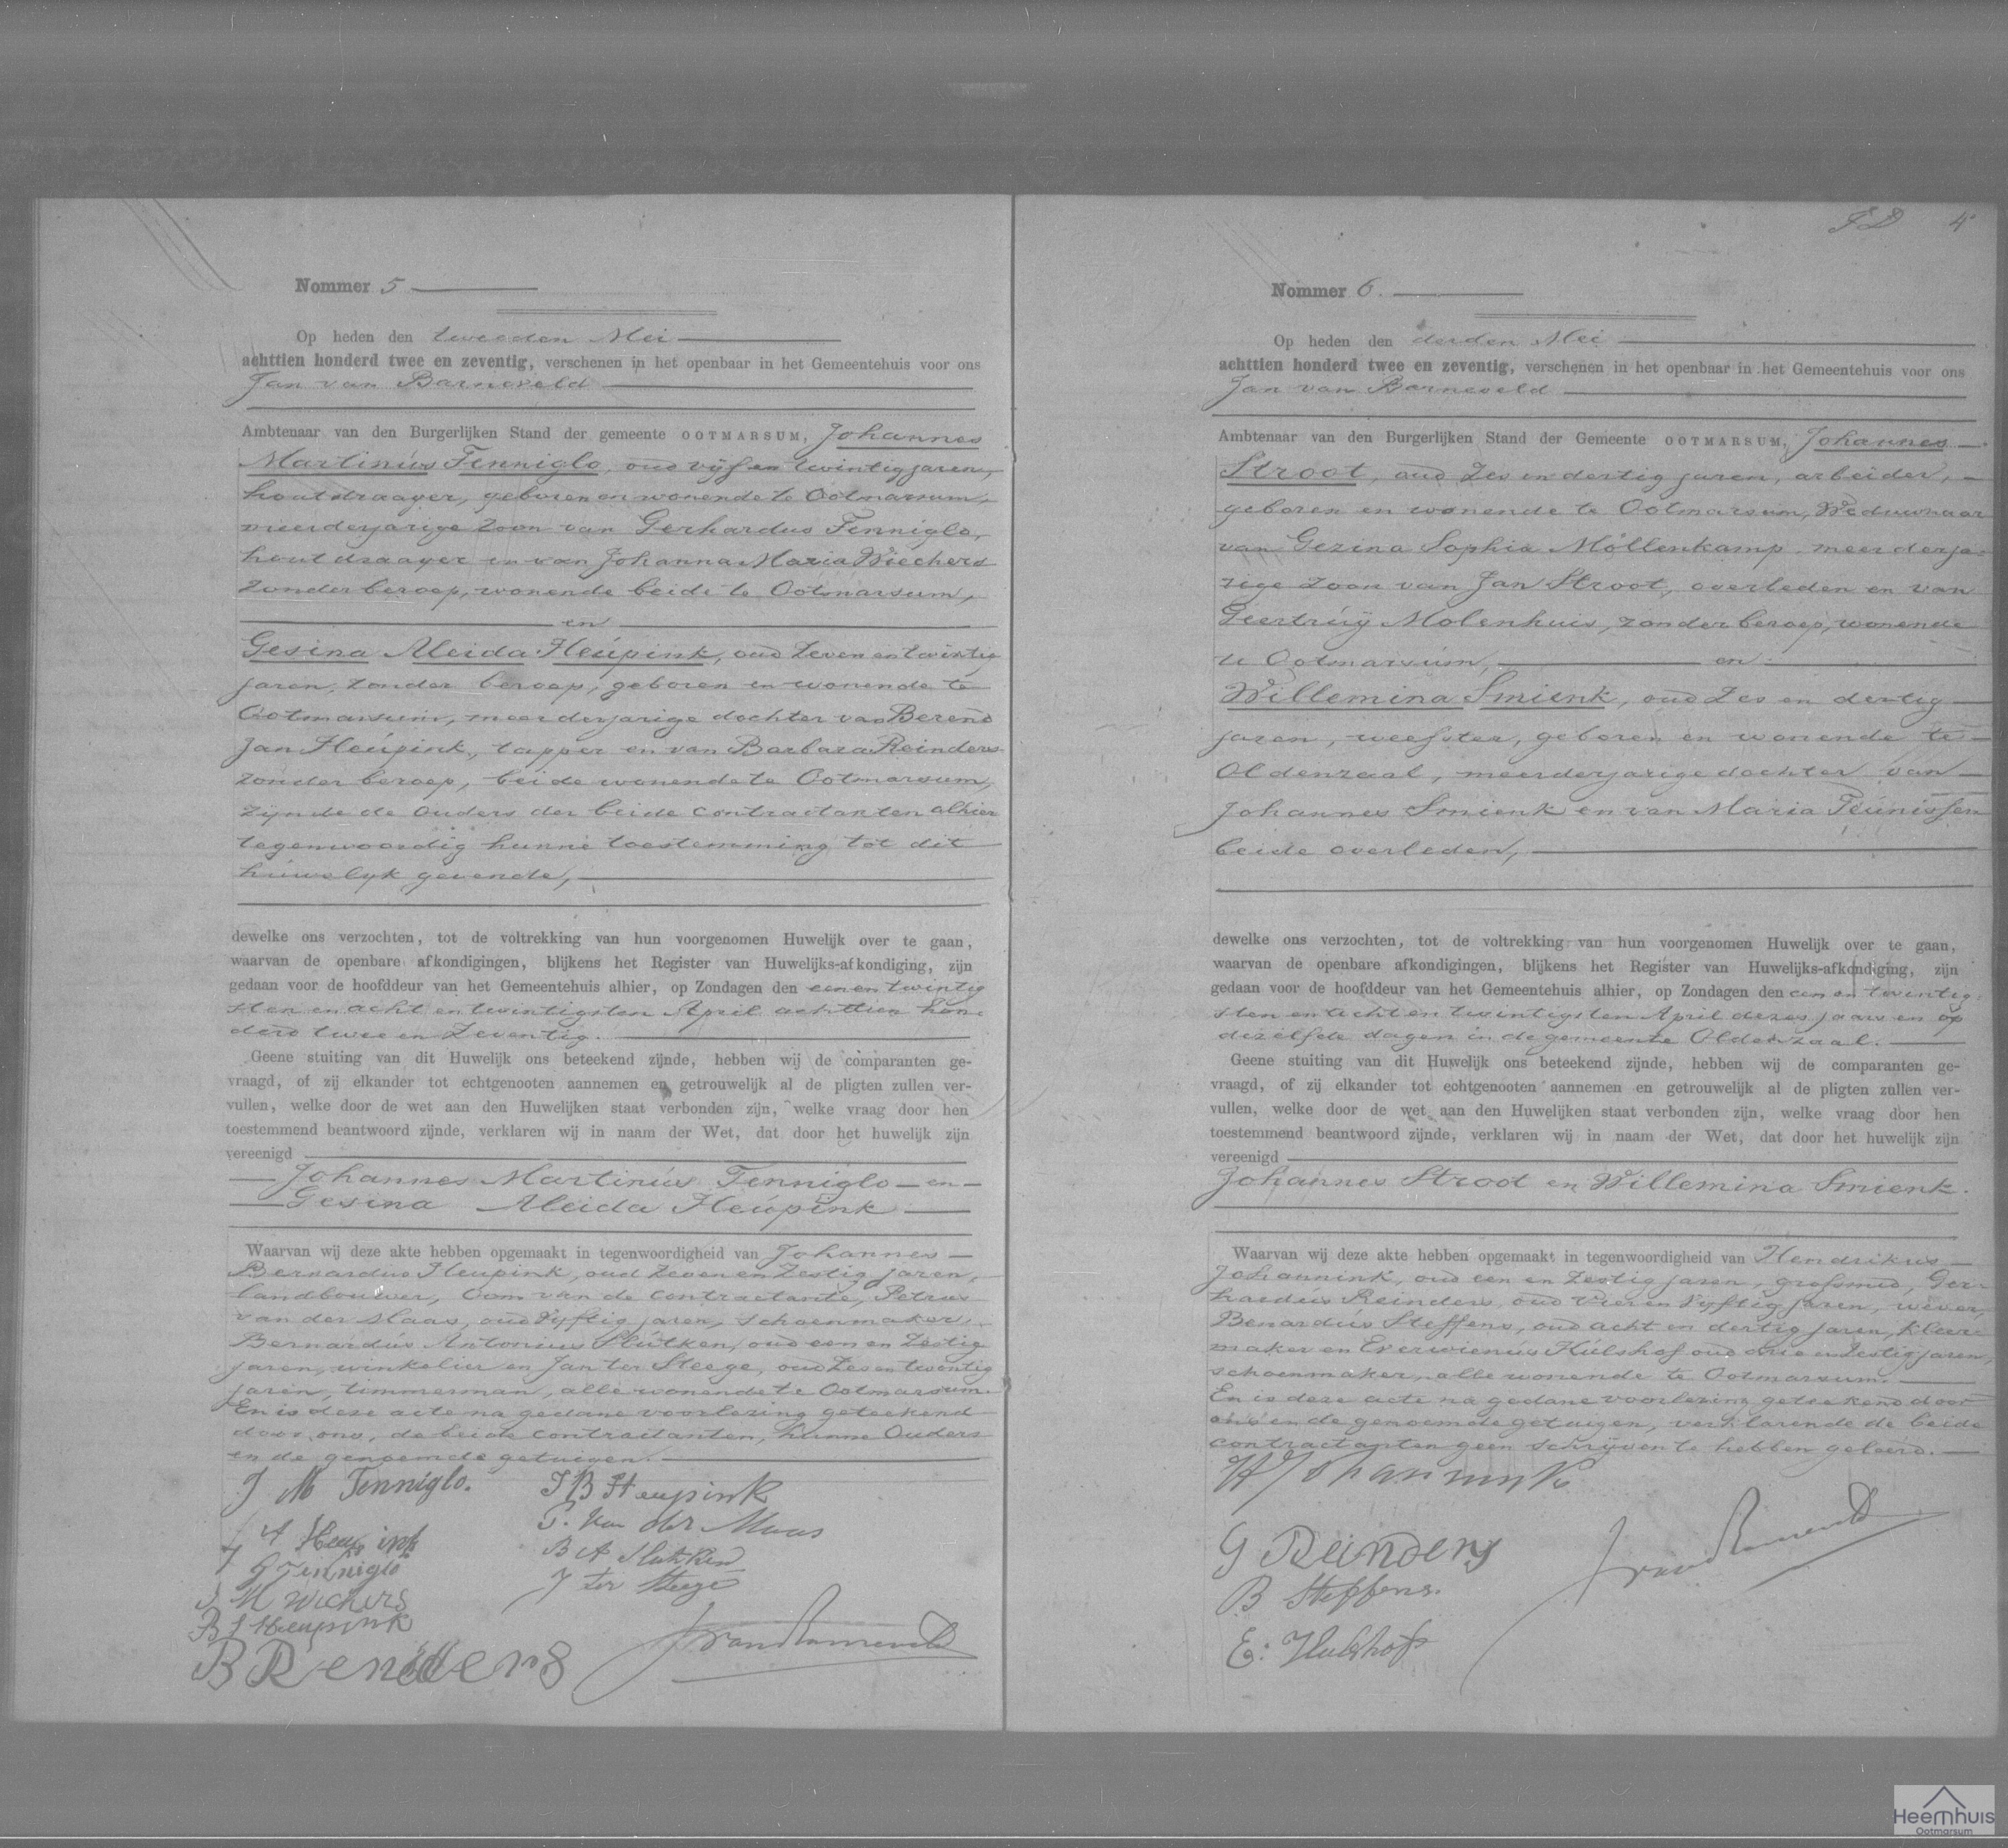 Nommer 5
Op heden den tweeden Mei
achttien honderd twee en zeventig, verschenen in het openbaar in het Gemeentehuis voor ons
Jan van Barneveld
Ambtenaar van den Burgerlijken Stand der gemeente OOTMARSUM, Johannes
Martinus Tenniglo, oud vijf en twintig jaren,
houtdraayer, geboren en wonende te Ootmarsum,
meerderjarige zoon van Gerhardus Tenniglo,
houtdraayer en van Johanna Maria Wiechers
zonder beroep, wonende beide te Ootmarsum,
en
Gesina Aleida Heupink, oud zeven en twintig
jaren, zonder beroep, geboren en wonende te
Ootmarsum, meerderjarige dochter van Berend
Jan Heupink, tapper en van Barbara Reinders
zonder beroep, beide wonende te Ootmarsum,
zijnde de ouders der beide contractanten alhier
tegenwoordig hunne toestemming tot dit
huwelyk gevende,
dewelke ons verzochten, tot de voltrekking van hun voorgenomen Huwelijk over te gaan,
waarvan de openbare afkondigingen, blijkens het Register van Huwelijks-afkondiging, zijn
gedaan voor de hoofddeur van het Gemeentehuis alhier, op Zondagen den een en twintig
sten en acht en twintigsten April achttien hon
derd twee en zeventig.
Geene stuiting van dit Huwelijk ons beteekend zijnde, hebben wij de comparanten ge-
vraagd, of zij elkander tot echtgenooten aannemen en getrouwelijk al de pligten zullen ver-
vullen, welke door de wet aan den Huwelijken staat verbonden zijn, welke vraag door hen
toestemmend beantwoord zijnde, verklaren wij in naam der Wet, dat door het huwelijk zijn
vereenigd
Johannes Martinus Tenniglo en
Gesina Aleida Heupink
Waarvan wij deze akte hebben opgemaakt in tegenwoordigheid van Johannes
Bernardus Heupink, oud zeven en zestig jaren,
landbouwer, oom van de contractante, Petrus
van der Maas, oud vyftig jaren, schoenmaker,
Bernardus Antonius Slutken, oud een en zestig
jaren, winkelier en Jan ter Steege, oud zes en twintig
jaren, timmerman, alle wonende te Ootmarsum.
En is deze acte na gedane voorlezing geteekend
door ons, de beide contractanten, hunne Ouders
en de genoemde getuigen.
J M Tenniglo. J B Heupink
G A Heupink P. Van der Maas
G Tenniglo B A Slutken
J M Wichers J ter Steege
B J Heupink
B Renders JvanBarneveld
4
Nommer 6.
Op heden den derden Mei
achttien honderd twee en zeventig, verschenen in het openbaar in het Gemeentehuis voor ons
Jan van Barneveld
Ambtenaar van den Burgerlijken Stand der Gemeente OOTMARSUM, Johannes
Stroot, oud zes en dertig jaren, arbeider,
geboren en wonende te Ootmarsum, Weduwnaar
van Gezina Sophia Möllenkamp, meerderja-
rige zoon van Jan Stroot, overleden en van
Geertruij Molenhuis, zonder beroep, wonende
te Ootmarsum, en
Willemina Smienk, oud zes en dertig
jaren, weefster, geboren en wonende te
Oldenzaal, meerderjarige dochter van
Johannes Smienk en van Maria Teunissen
beide overleden,
dewelke ons verzochten, tot de voltrekking van hun voorgenomen Huwelijk over te gaan,
waarvan de openbare afkondigingen, blijkens het Register van Huwelijks-afkondiging, zijn
gedaan voor de hoofddeur van het Gemeentehuis alhier, op Zondagen den een en twintig
sten en acht en twintigsten April dezes jaars en op
dezelfde dagen in de gemeente Oldenzaal.
Geene stuiting van dit Huwelijk ons beteekend zijnde, hebben wij de comparanten ge-
vraagd, of zij elkander tot echtgenooten aannemen en getrouwelijk al de pligten zullen ver-
vullen, welke door de wet aan den Huwelijken staat verbonden zijn, welke vraag door hen
toestemmend beantwoord zijnde, verklaren wij in naam der Wet, dat door het huwelijk zijn
vereenigd
Johannes Stroot en Willemina Smienk.
Waarvan wij deze akte hebben opgemaakt in tegenwoordigheid van Hendrikus
Johannink, oud een en zestig jaren, grofsmid, Ger-
hardus Reinders, oud vier en vyftig jaren, wever,
Benardus Steffens, oud acht en dertig jaren, kleer
maker en Everwienus Hulshof oud drie en zestig jaren,
schoenmaker, alle wonende te Ootmarsum.
En is deze acte na gedane voorlezing geteekend door
ons en de genoemde getuigen, verklarende de beide
contractanten geen schrijven te hebben geleerd.
H Johannink
G Reinders JvanBarneveld
B Steffens.
E: Hulshof
Heemhuis
Ootmarsum